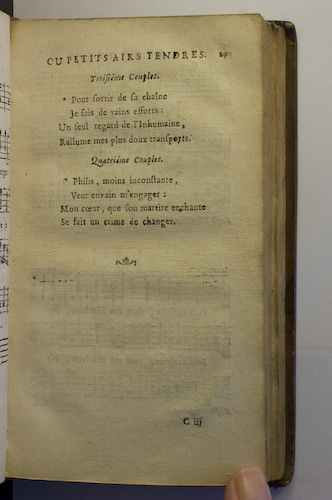 OU PETITS AIRS TENDRES. 29
Troisiéme Couplet.
* Pour sortir de sa chaîne
Je fais de vains efforts :
Un seul regard de l'Inhumaine,
Rallume mes plus doux transports.
Quatriéme Couplet.
* Philis, moins inconstante,
Veut envain m'engager :
Mon cœur, que son martire enchante
Se fait un crime de changer.
C iij